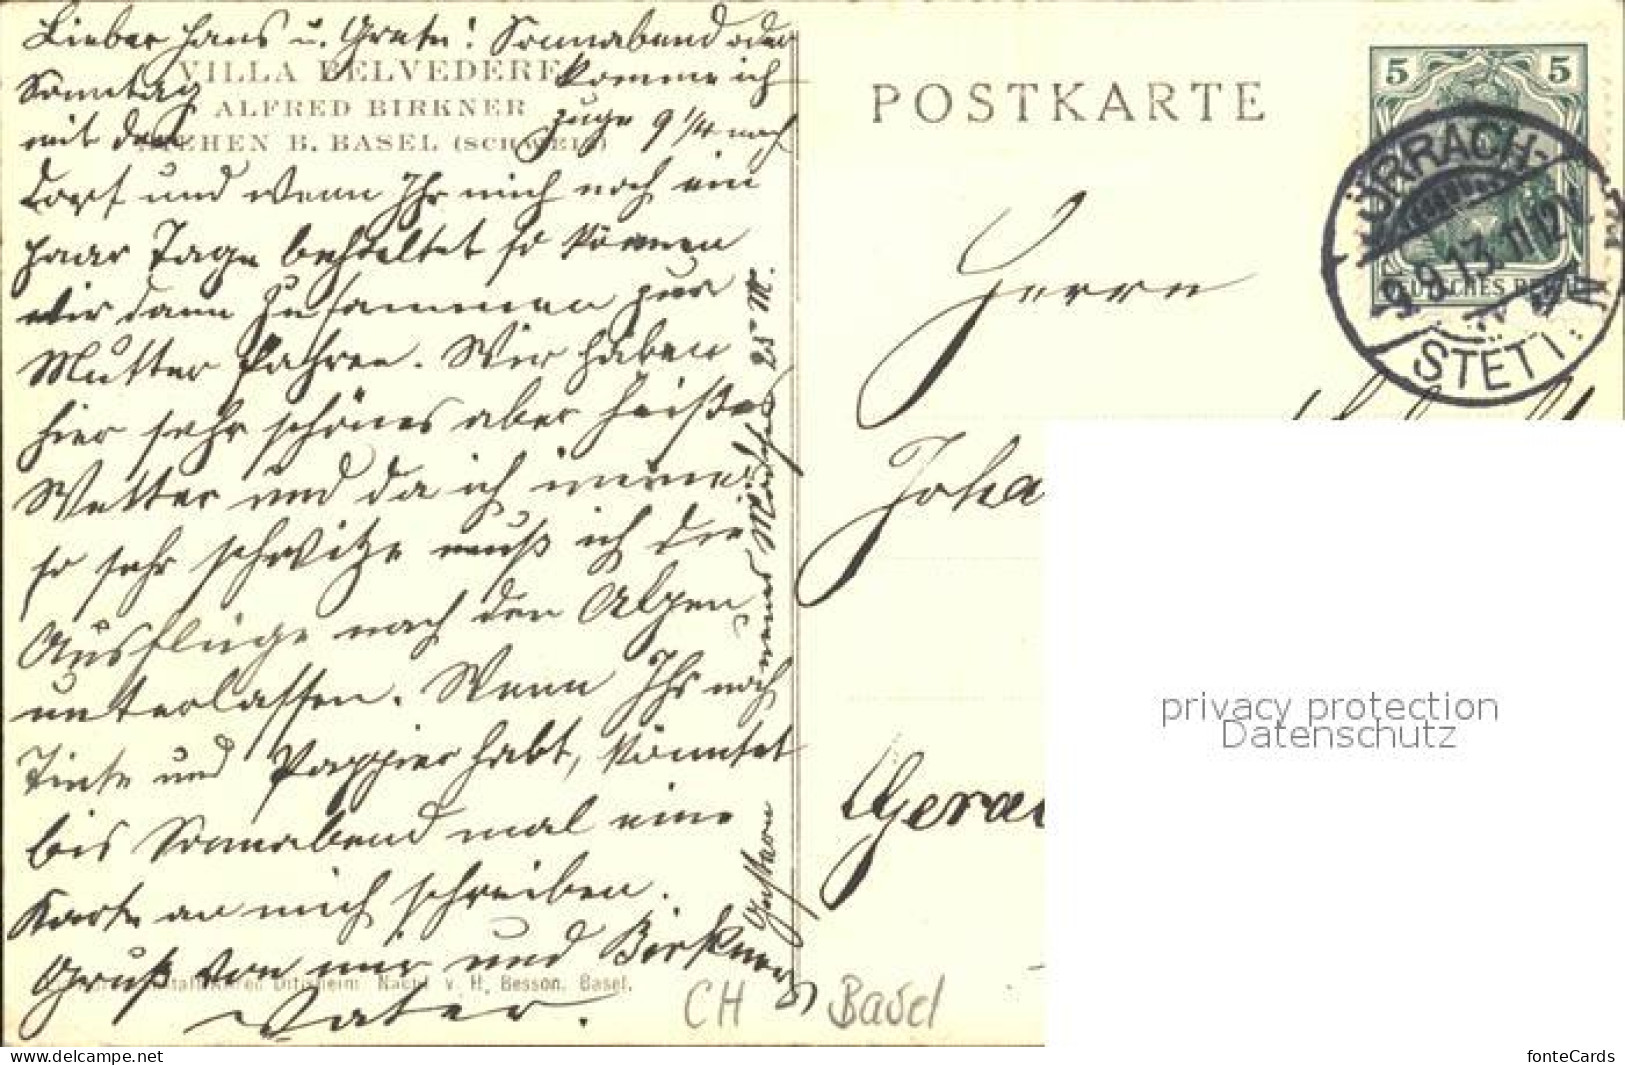 Lieber Hans u. Grete! Sonnabend oder
Sonntag komme ich
mit dem Zuge 9 1/4 nach
VILLA BELVEDERE
ALFRED BIRKNER
RIEHEN B. BASEL (SCHWEIZ)
dort und wenn Ihr mich noch ein
paar Tage behaltet so können
wir dann zusammen zur
Mutter fahren. Wir haben
hier sehr schönes aber heißes
Wetter und da ich immer
so sehr schwitze muß ich die
Ausflüge nach den Alpen
unterlassen. Wenn Ihr noch
Tinte und Pappier habt, könntet
bis Sonnabend mal eine
Karte an mich schreiben.
Gruß von mir und Birkners
Vater.
Gestern 25 M.
Ditisheim Nachf. v. H. Besson. Basel.
CH Basel
POSTKARTE
5 5
DEUTSCHES REICH
LÖRRACH-
9.9.13. 11-12 V.
STETT.
Herrn
Joha
Gera
privacy protection
Datenschutz
www.ansichtskarten-center.de
fonteCards